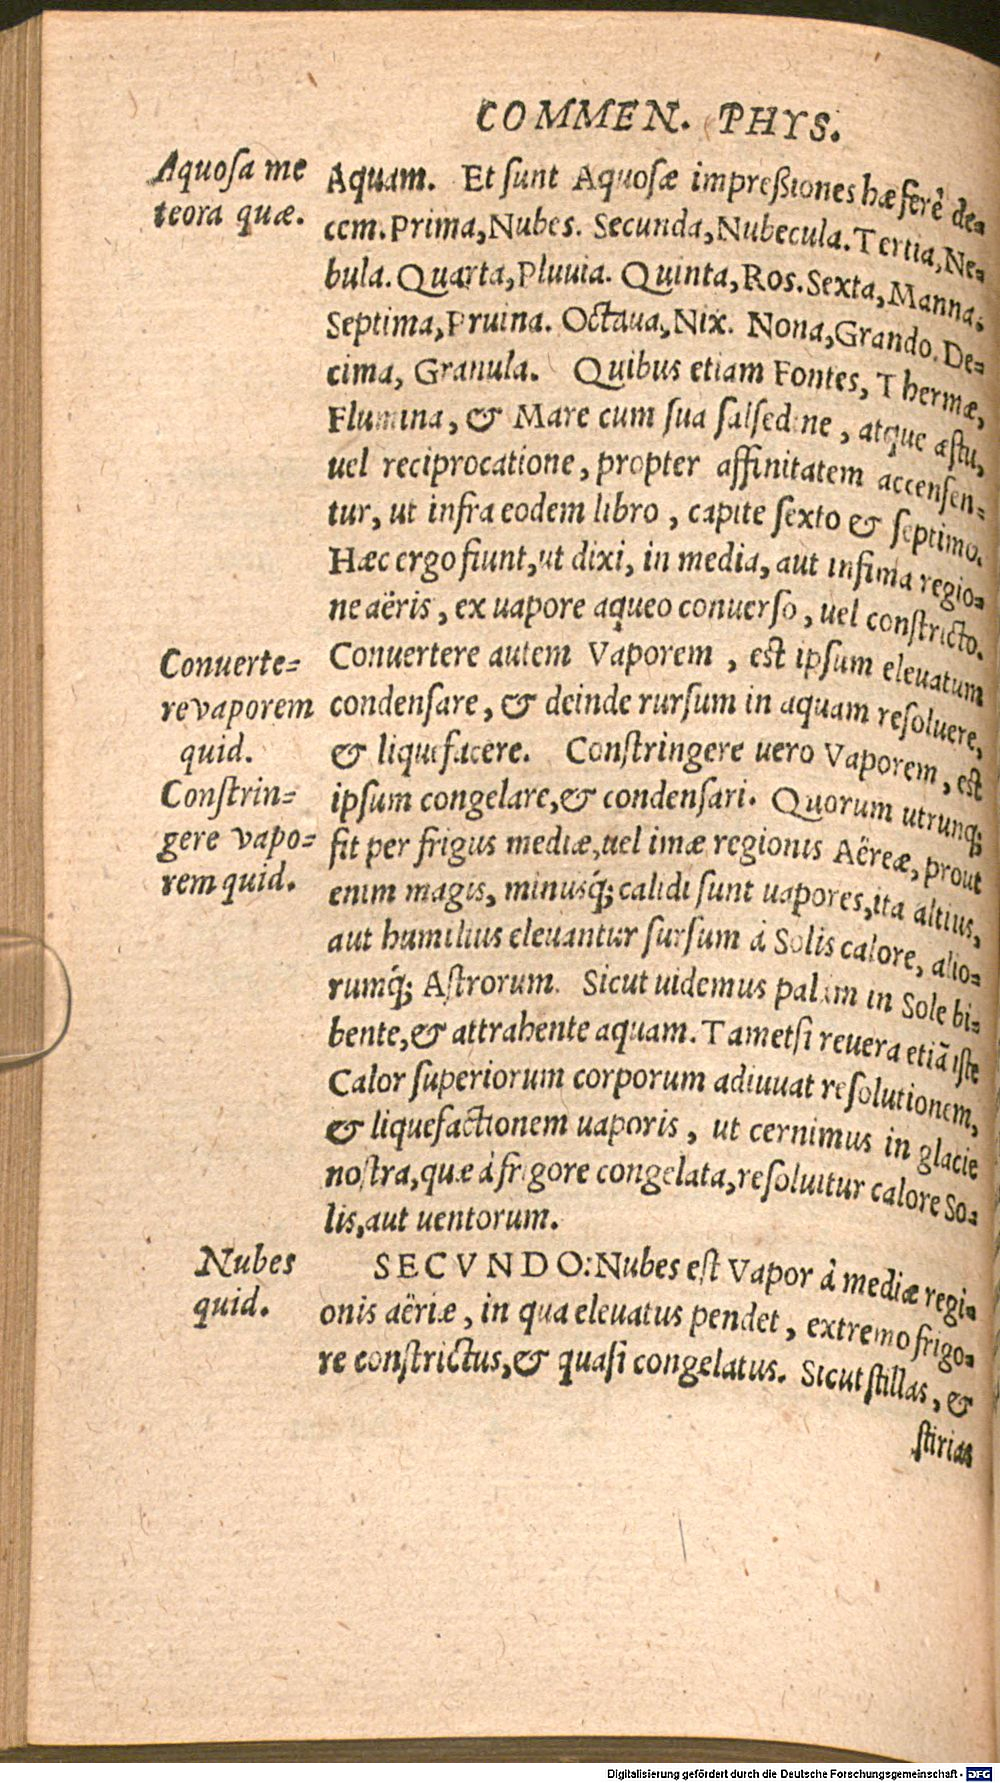 COMMEN. PHYS.
Aquosa me
teora quæ.
Aquam. Et sunt Aquosæ impreßiones hæ ferè de⸗
cem. Prima, Nubes. Secunda, Nubecula. Tertia, Ne⸗
bula. Quarta, Pluuia. Quinta, Ros. Sexta, Manna.
Septima, Pruina. Octaua, Nix. Nona, Grando. De⸗
cima, Granula. Quibus etiam Fontes, Thermæ,
Flumina, & Mare cum sua salsedine, atque æstu,
uel reciprocatione, propter affinitatem accensen⸗
tur, ut infra eodem libro, capite sexto & septimo.
Hæc ergo fiunt, ut dixi, in media, aut infima regio⸗
ne aëris, ex uapore aqueo conuerso, uel constricto.
Conuerte⸗
re vaporem
quid.
Conuertere autem Vaporem, est ipsum eleuatum
condensare, & deinde rursum in aquam resoluere,
& liquefacere. Constringere uero Vaporem, est
Constrin⸗
gere vapo⸗
rem quid.
ipsum congelare, & condensari. Quorum utrunq;
fit per frigus mediæ, uel imæ regionis Aëreæ, prout
enim magis, minusq́; calidi sunt uapores, ita altius,
aut humilius eleuantur sursum à Solis calore, alio⸗
rumq́; Astrorum. Sicut uidemus palàm in Sole bi⸗
bente, & attrahente aquam. Tametsi reuera etiã iste
Calor superiorum corporum adiuuat resolutionem,
& liquefactionem uaporis, ut cernimus in glacie
nostra, quæ à frigore congelata, resoluitur calore So⸗
lis, aut uentorum.
Nubes
quid.
SECVNDO: Nubes est Vapor à mediæ regi⸗
onis aëriæ, in qua eleuatus pendet, extremo frigo⸗
re constrictus, & quasi congelatus. Sicut stillas, &
stirias
Digitalisierung gefördert durch die Deutsche Forschungsgemeinschaft - DFG